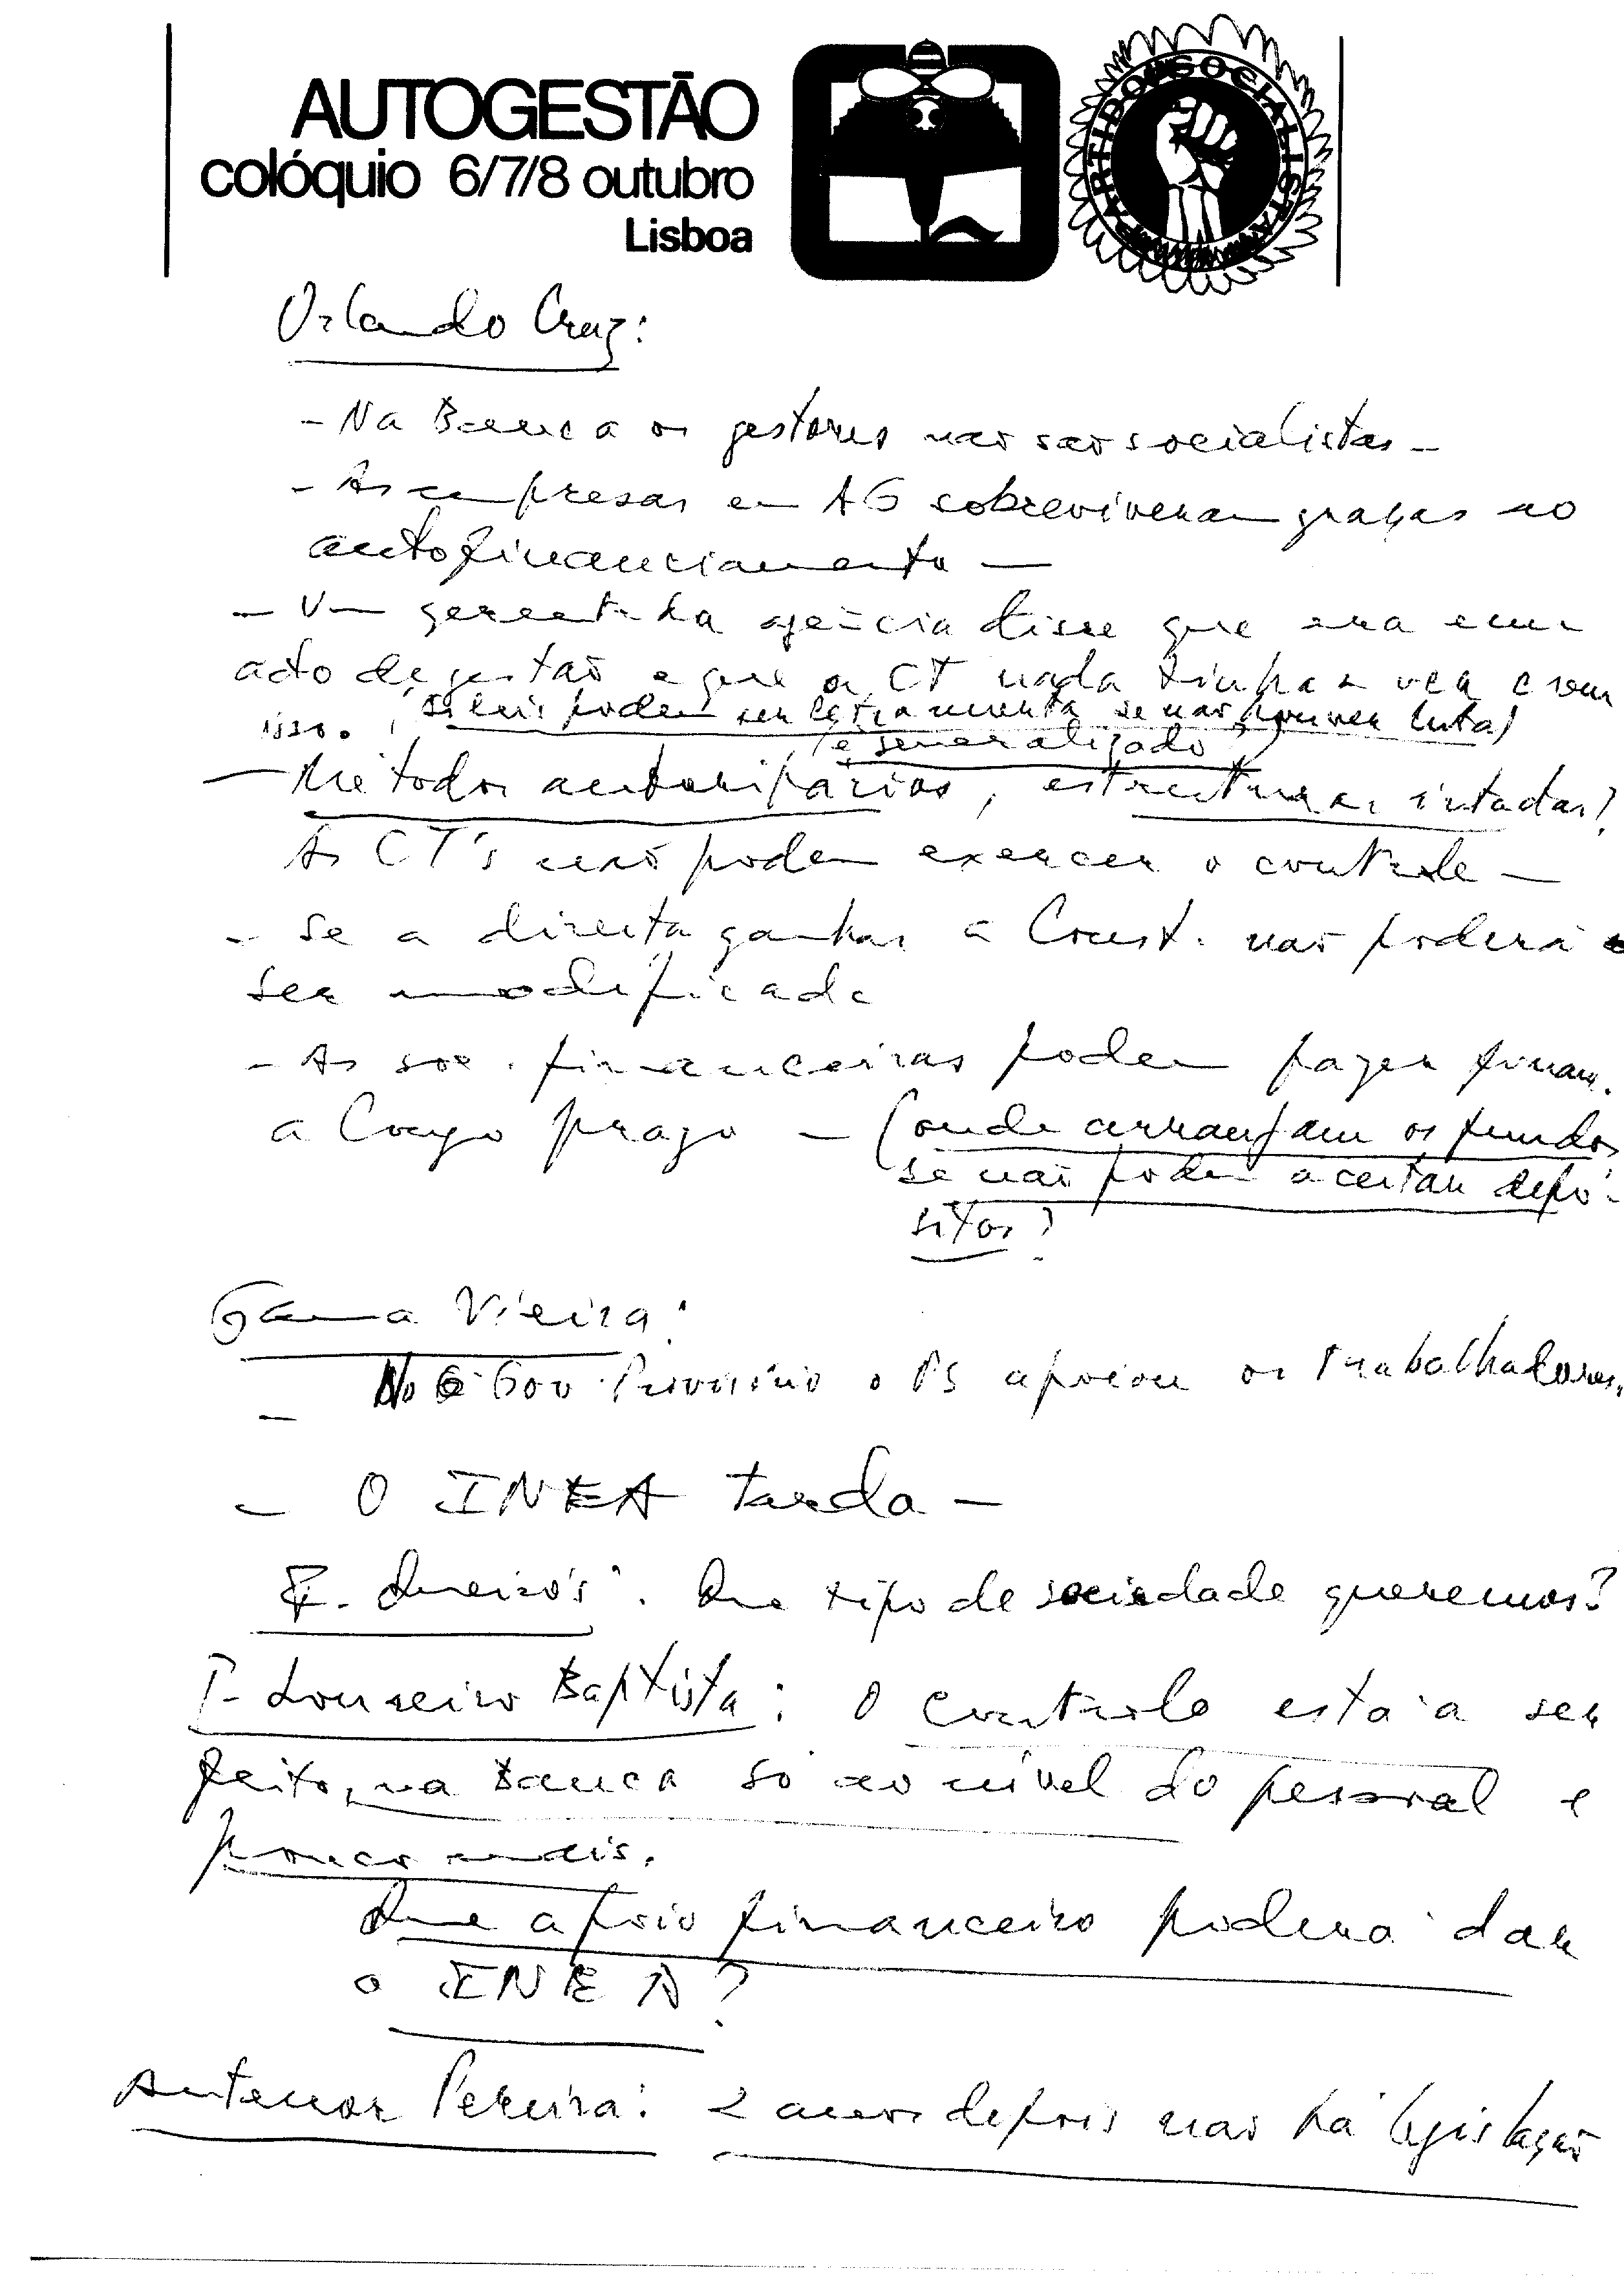 AUTOGESTÃO
colóquio 6/7/8 outubro
Lisboa
PARTIDO SOCIALISTA
Orlando Cruz:
- Na Banca os gestores não são socialistas -
- As empresas em AG sobreviveram graças ao
autofinanciamento -
- Um gerente da agência disse que era um
acto de gestão e que a CT nada tinha a ver com
isso. (As leis podem ser letra morta se não houver luta)
(é generalizado?)
- Métodos autoritários, estruturas intactas?
As CT's não podem exercer o controle -
- Se a direita ganhar a Const. não poderá
ser modificada
- As soc. financeiras podem fazer financ.
a longo prazo - (onde arranjam os fundos
se não podem aceitar depó-
sitos?
Gama Vieira:
- No 6º Gov. Provisório o PS apoiou os trabalhadores.
- O INEA tarda -
Que tipo de sociedade queremos?
Loureiro Baptista: O controle está a ser
feito, na Banca só ao nível do pessoal e
pouco mais.
Que apoio financeiro poderá dar
o INEA?
Antenor Pereira: 2 anos depois não há legislação